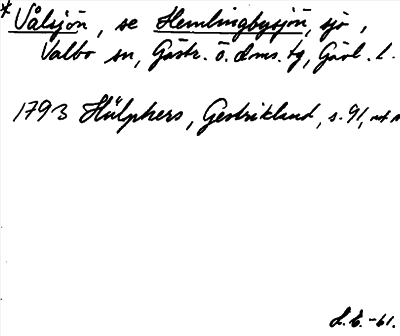 * Vålsjön, se Hemlingbysjön, sjö,
Valbo sn, Gästr. ö. dms. tg, Gävl. l.
1793 Hülphers, Gestrikland, s. 91,
L.E. -61.